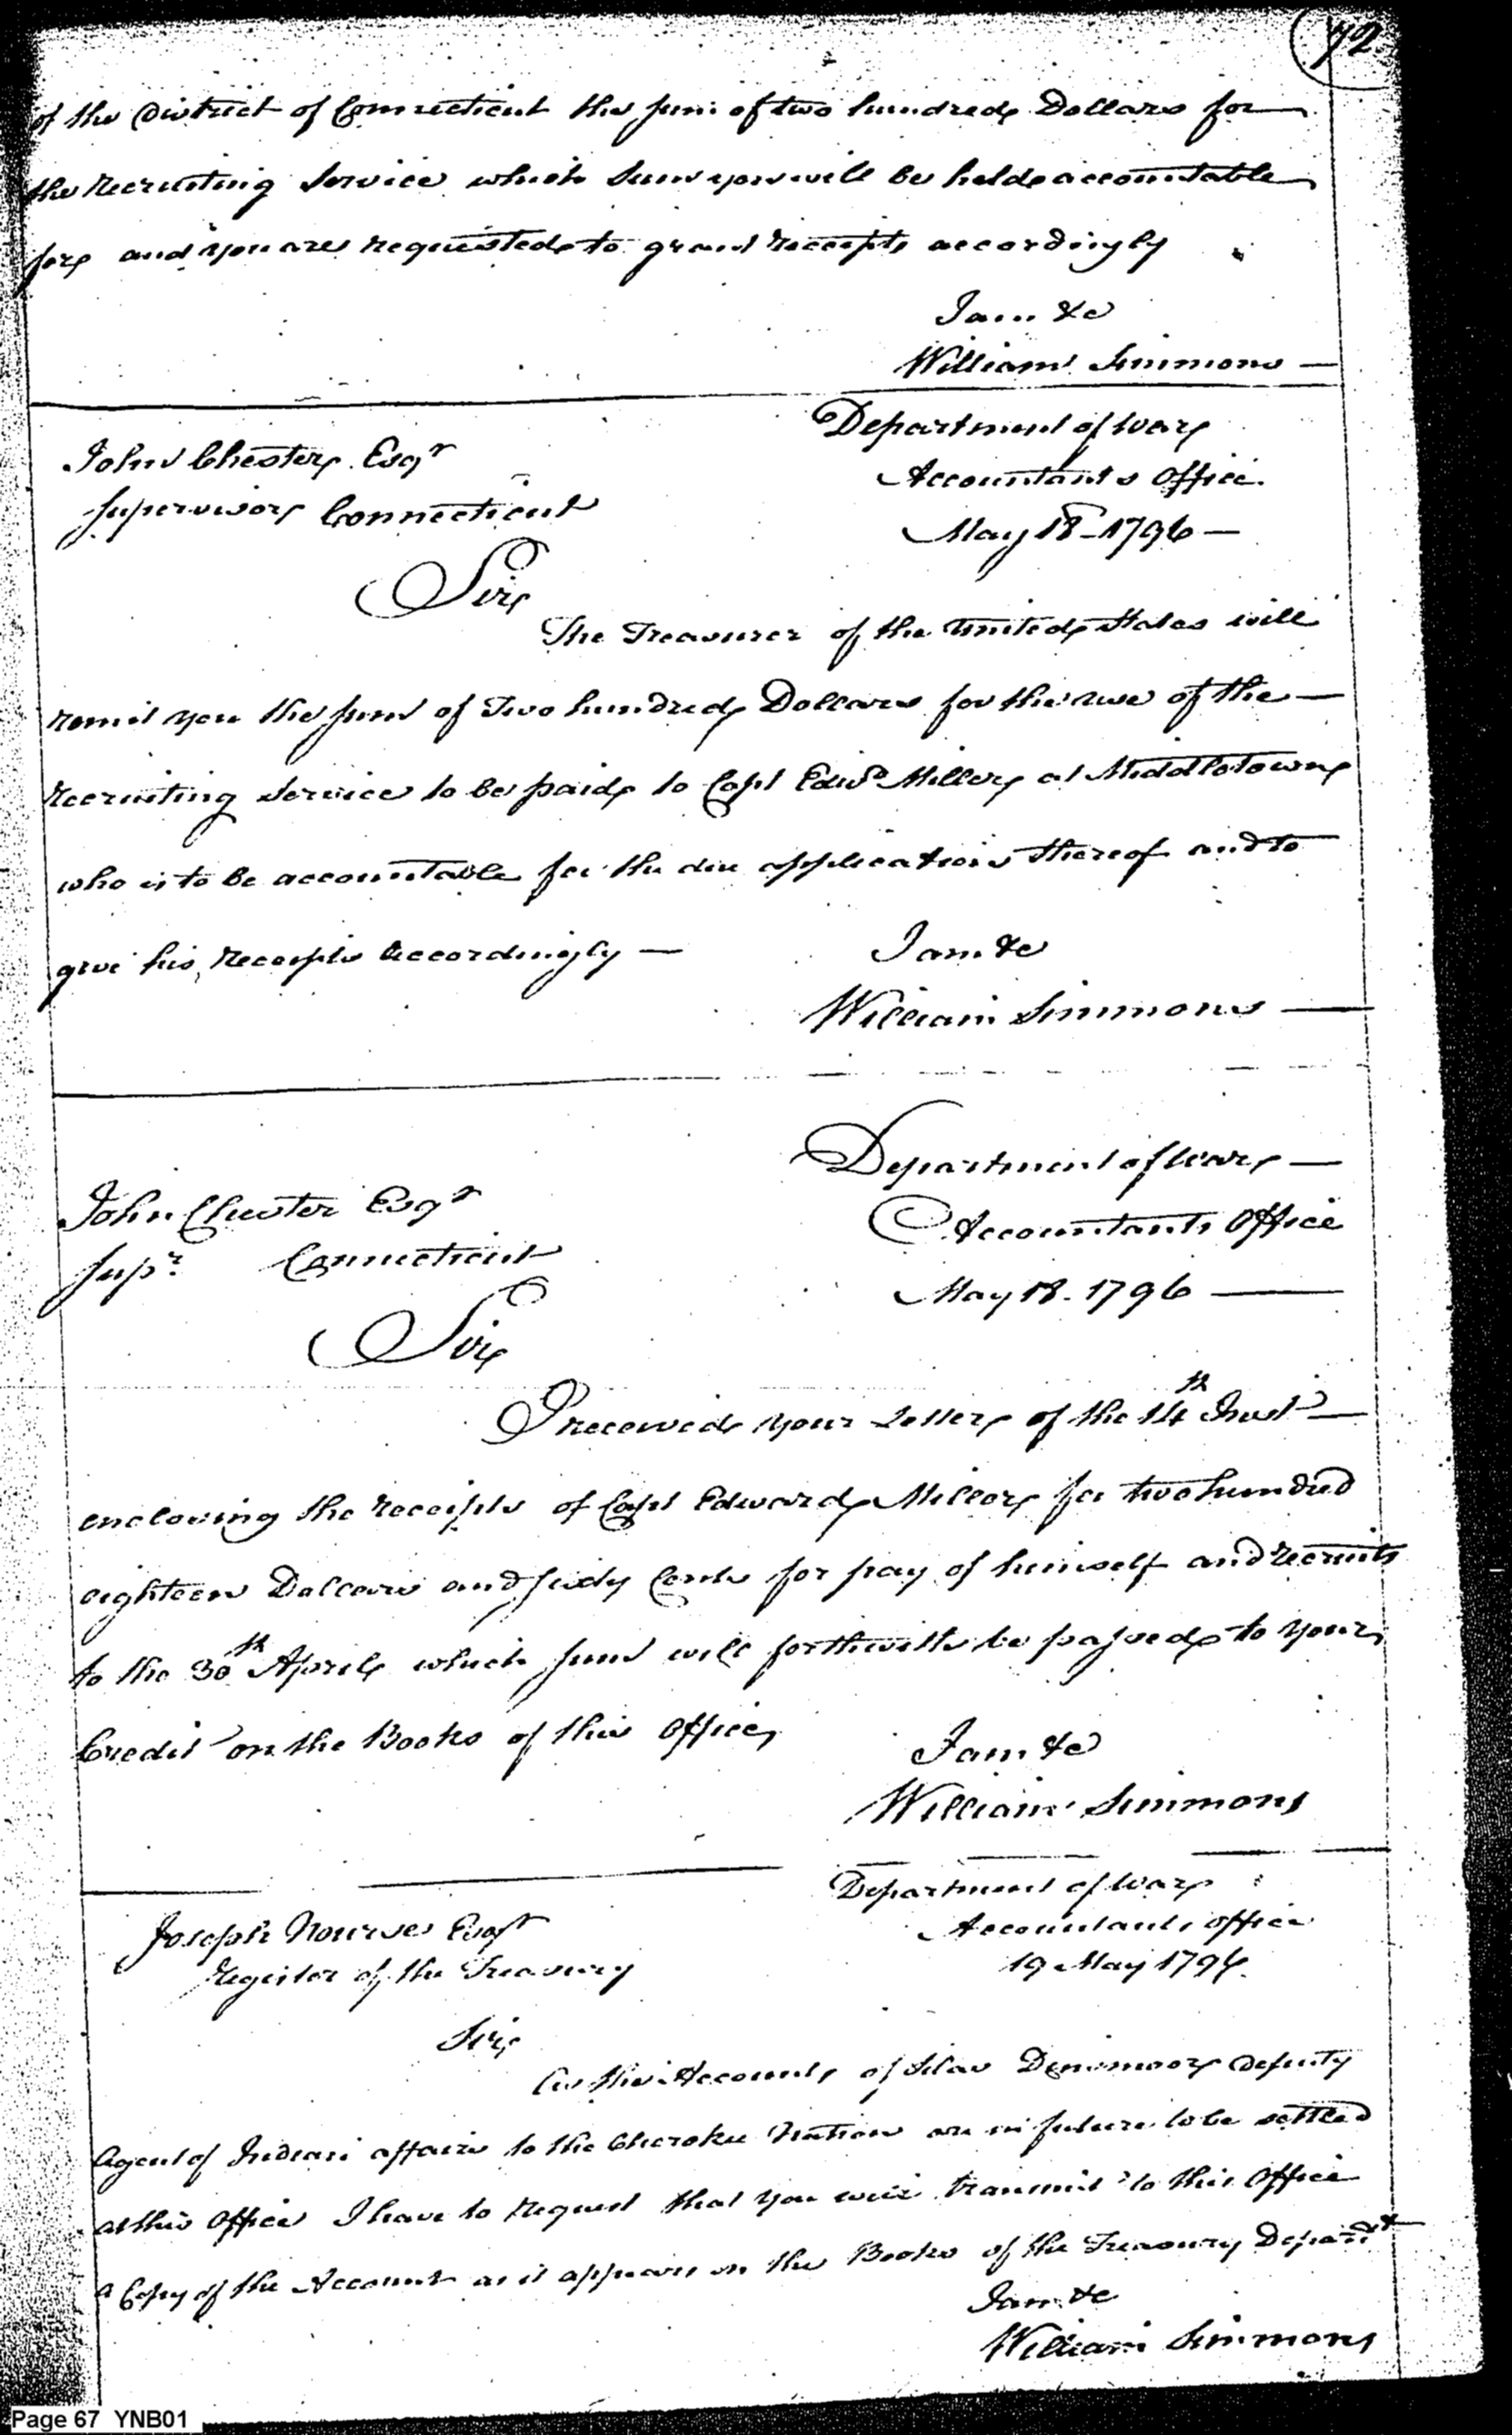 72
of the District of Connecticut the sum of two hundred Dollars for
the recruiting Service which sum you will be held accountable
for and you are requested to grant receipts accordingly
I am &c
William Simmons —
John Chester Esqr
Supervisor Connecticut
Department of War
Accountants Office
May 18 - 1796 —
Sir
The Treasurer of the United States will
remit you the sum of Two hundred Dollars for the use of the —
recruiting Service to be paid to Capt Edwd Miller at Middletown
who is to be accountable for the due application thereof and to
give his receipts accordingly —
I am &c
William Simmons —
John Chester Esqr
Supr. Connecticut
Department of War —
Accountants Office
May 18 - 1796 —
Sir
I received your Letter of the 14th Inst —
enclosing the receipts of Capt Edward Miller for two hundred
eighteen Dollars and sixty Cents for pay of himself and recruits
to the 30th April which sum will forthwith be passed to your
Credit on the Books of this Office,
I am &c
William Simmons
Joseph Nourse Esqr
Register of the Treasury
Department of War
Accountants office
19 May 1796.
Sir
As the Accounts of Silas Dinsmoor deputy
Agent of Indian affairs to the Cherokee Nation are in future to be settled
at this Office I have to request that you will transmit to this Office
a Copy of the Account as it appears on the Books of the Treasury Departt
I am &c
William Simmons
Page 67 YNB01